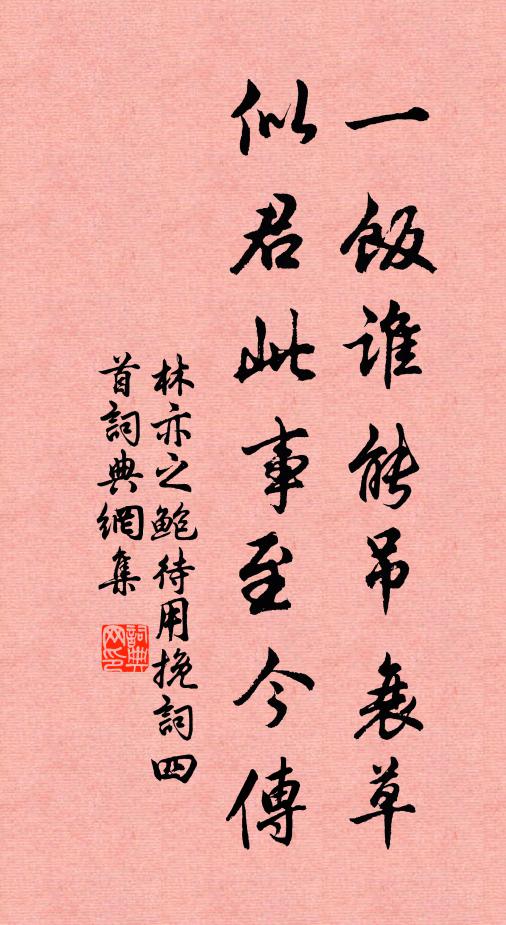 一飯誰能吊衰草
似君此事至今傳
林亦之鮑待用挽詞四
首詞典網集
詞典
网印